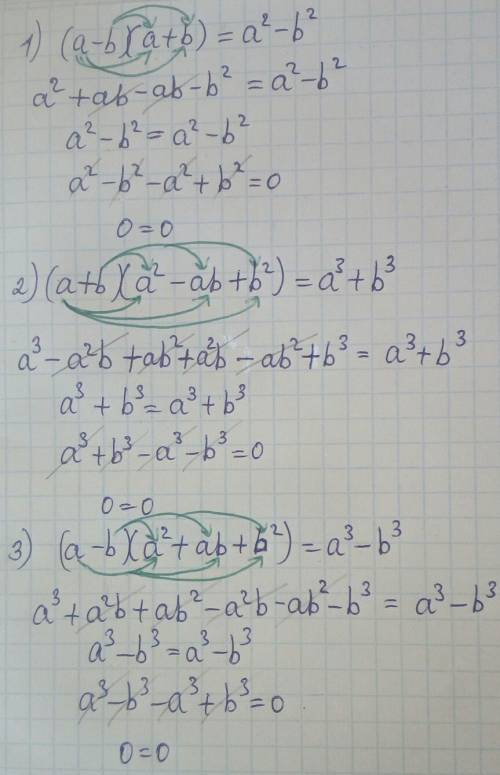 1) (a-b)(a+b) = a²-b²
a²+ab-ab-b² = a²-b²
a²-b² = a²-b²
a²-b²-a²+b²=0
0=0
2) (a+b)(a²-ab+b²) = a³+b³
a³-a²b+ab²+a²b-ab²+b³ = a³+b³
a³+b³=a³+b³
a³+b³-a³-b³=0
0=0
3) (a-b)(a²+ab+b²) = a³-b³
a³+a²b+ab²-a²b-ab²-b³ = a³-b³
a³-b³=a³-b³
a³-b³-a³+b³=0
0=0